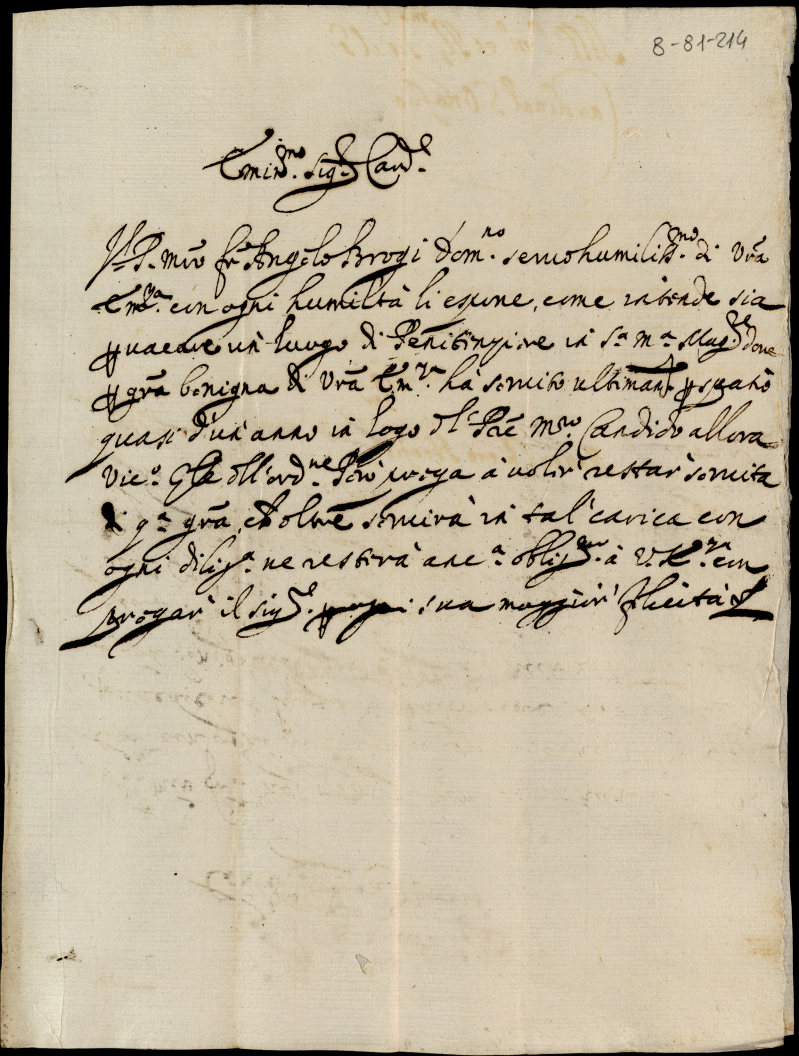 8-81-214
Emin.mo Sig.r Card.l
Il P. Mro fr Angelo Brogi Dom.no servo humiliss.mo di Vra
Em.za con ogni humiltà li espone, come intende sia
vacare un luogo di Penitenziere in S.a M.a Mag.re dove
gra benigna di Vra Em.za ha servito ultimam.te spatio
quasi d'un anno in logo del Pre Mro Candido allora
Vic.o Gle dell'ord.ne Però prega a voler restar servita
di q.a gra, che oltre servirà in tal carica con
ogni dilig.a ne resterà anc.a oblig.mo à V. E.za con
pregar il Sig.re sua maggior felicità